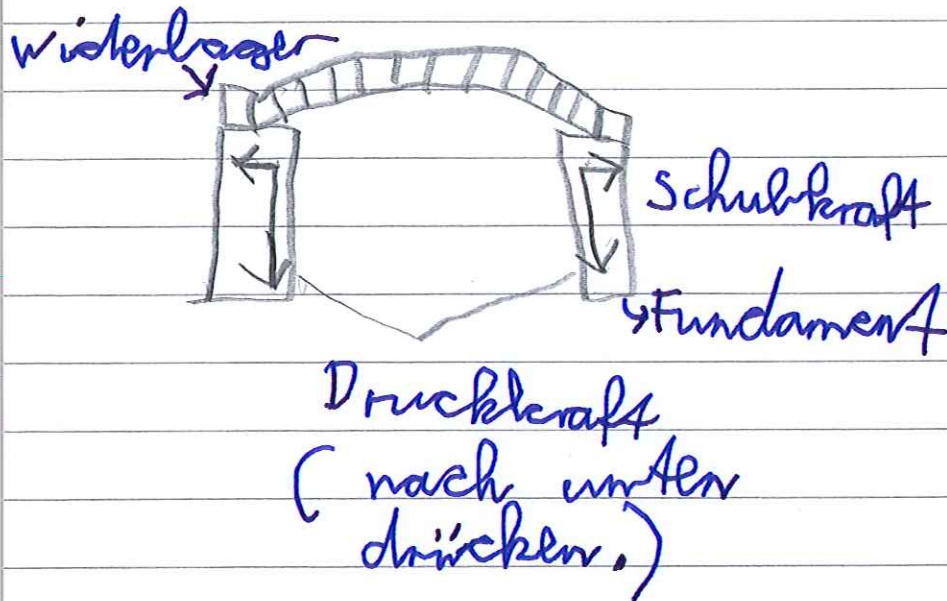 Widerlager
Schubkraft
Fundament
Druckkraft
(nach unten
drücken.)